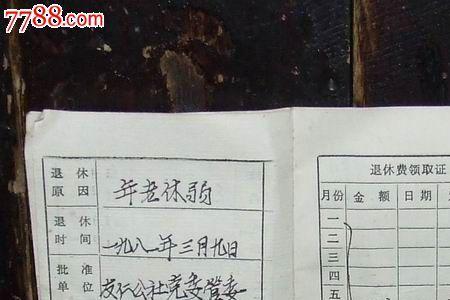 7788.com
退休原因 年老体弱
退休时间 一九八一年三月九日
批准单位 友仁公社党委管委
退休费领取证
月份 金额 日期
一
二
三
四
五